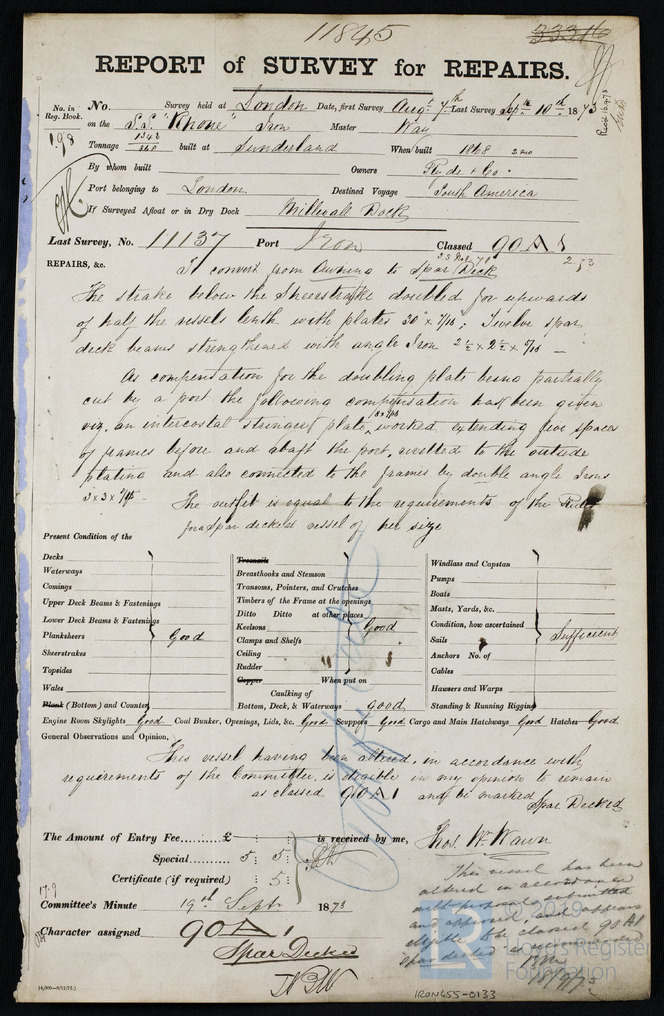 11845
33316
REPORT of SURVEY for REPAIRS.
No. in Reg. Book. No. Survey held at London Date, first Survey Augt 7th Last Survey Sepr 10th 1873
198 on the S.S. "Rhone" Iron Master Way
Tonnage 1342 860 built at Sunderland When built 1868 2 mo
By whom built Owners Ryde & Co.
Port belonging to London Destined Voyage South America
If Surveyed Afloat or in Dry Dock Millwall Dock
Last Survey, No. 11137 Port Iron Classed 90 A 1
REPAIRS, &c. To convert from Awning to Spar Deck
The strake below the Sheerstrake doubled for upwards
of half the vessels length with plates 30" x 7/16; Twelve spar
deck beams strengthened with angle Iron 2½ x 2½ x 5/16 —
As compensation for the doubling plate being partially
cut by a port the following compensation has been given
viz. an intercostal stringer plate worked, extending five spaces
of frames before and abaft the port, rivetted to the outside
plating and also connected to the frames by double angle Irons
3 x 3 x 7/16 The outfit is equal to the requirements of the Rules
for a spar decked vessel of her size
Present Condition of the
Decks
Waterways
Comings
Upper Deck Beams & Fastenings
Lower Deck Beams & Fastenings
Planksheers Good
Sheerstrakes
Topsides
Wales
Plank (Bottom) and Counter
Treenails
Breasthooks and Stemson
Transoms, Pointers, and Crutches
Timbers of the Frame at the openings
Ditto Ditto at other places
Keelsons Good
Clamps and Shelfs
Ceiling
Rudder
Copper When put on
Caulking of
Bottom, Deck, & Waterways good
Windlass and Capstan
Pumps
Boats
Masts, Yards, &c.
Condition, how ascertained
Sails Sufficient
Anchors No. of
Cables
Hawsers and Warps
Standing & Running Rigging
Engine Room Skylights Good Coal Bunker, Openings, Lids, &c. Good Scuppers Good Cargo and Main Hatchways Good Hatches Good
General Observations and Opinion,
This vessel having been altered, in accordance with
requirements of the Committee, is eligible in my opinion to remain
as classed 90 A 1 and be marked Spar Decked
The Amount of Entry Fee......... £ is received by me, Thos. W. Wawn
Special........ 5 : 5 :
Certificate (if required) : 5 :
17.9
Committee's Minute 19th Septr 1873
Character assigned 90 A 1
Spar Decked
This vessel has been
altered in accordance
with proposal submitted
and approved, and appears
eligible to be classed 90 A1
spar decked as recommended
18/9/73
[4,000—9/12/72.]
© 2019
LR
Lloyd's Register
Foundation
IRON455-0133